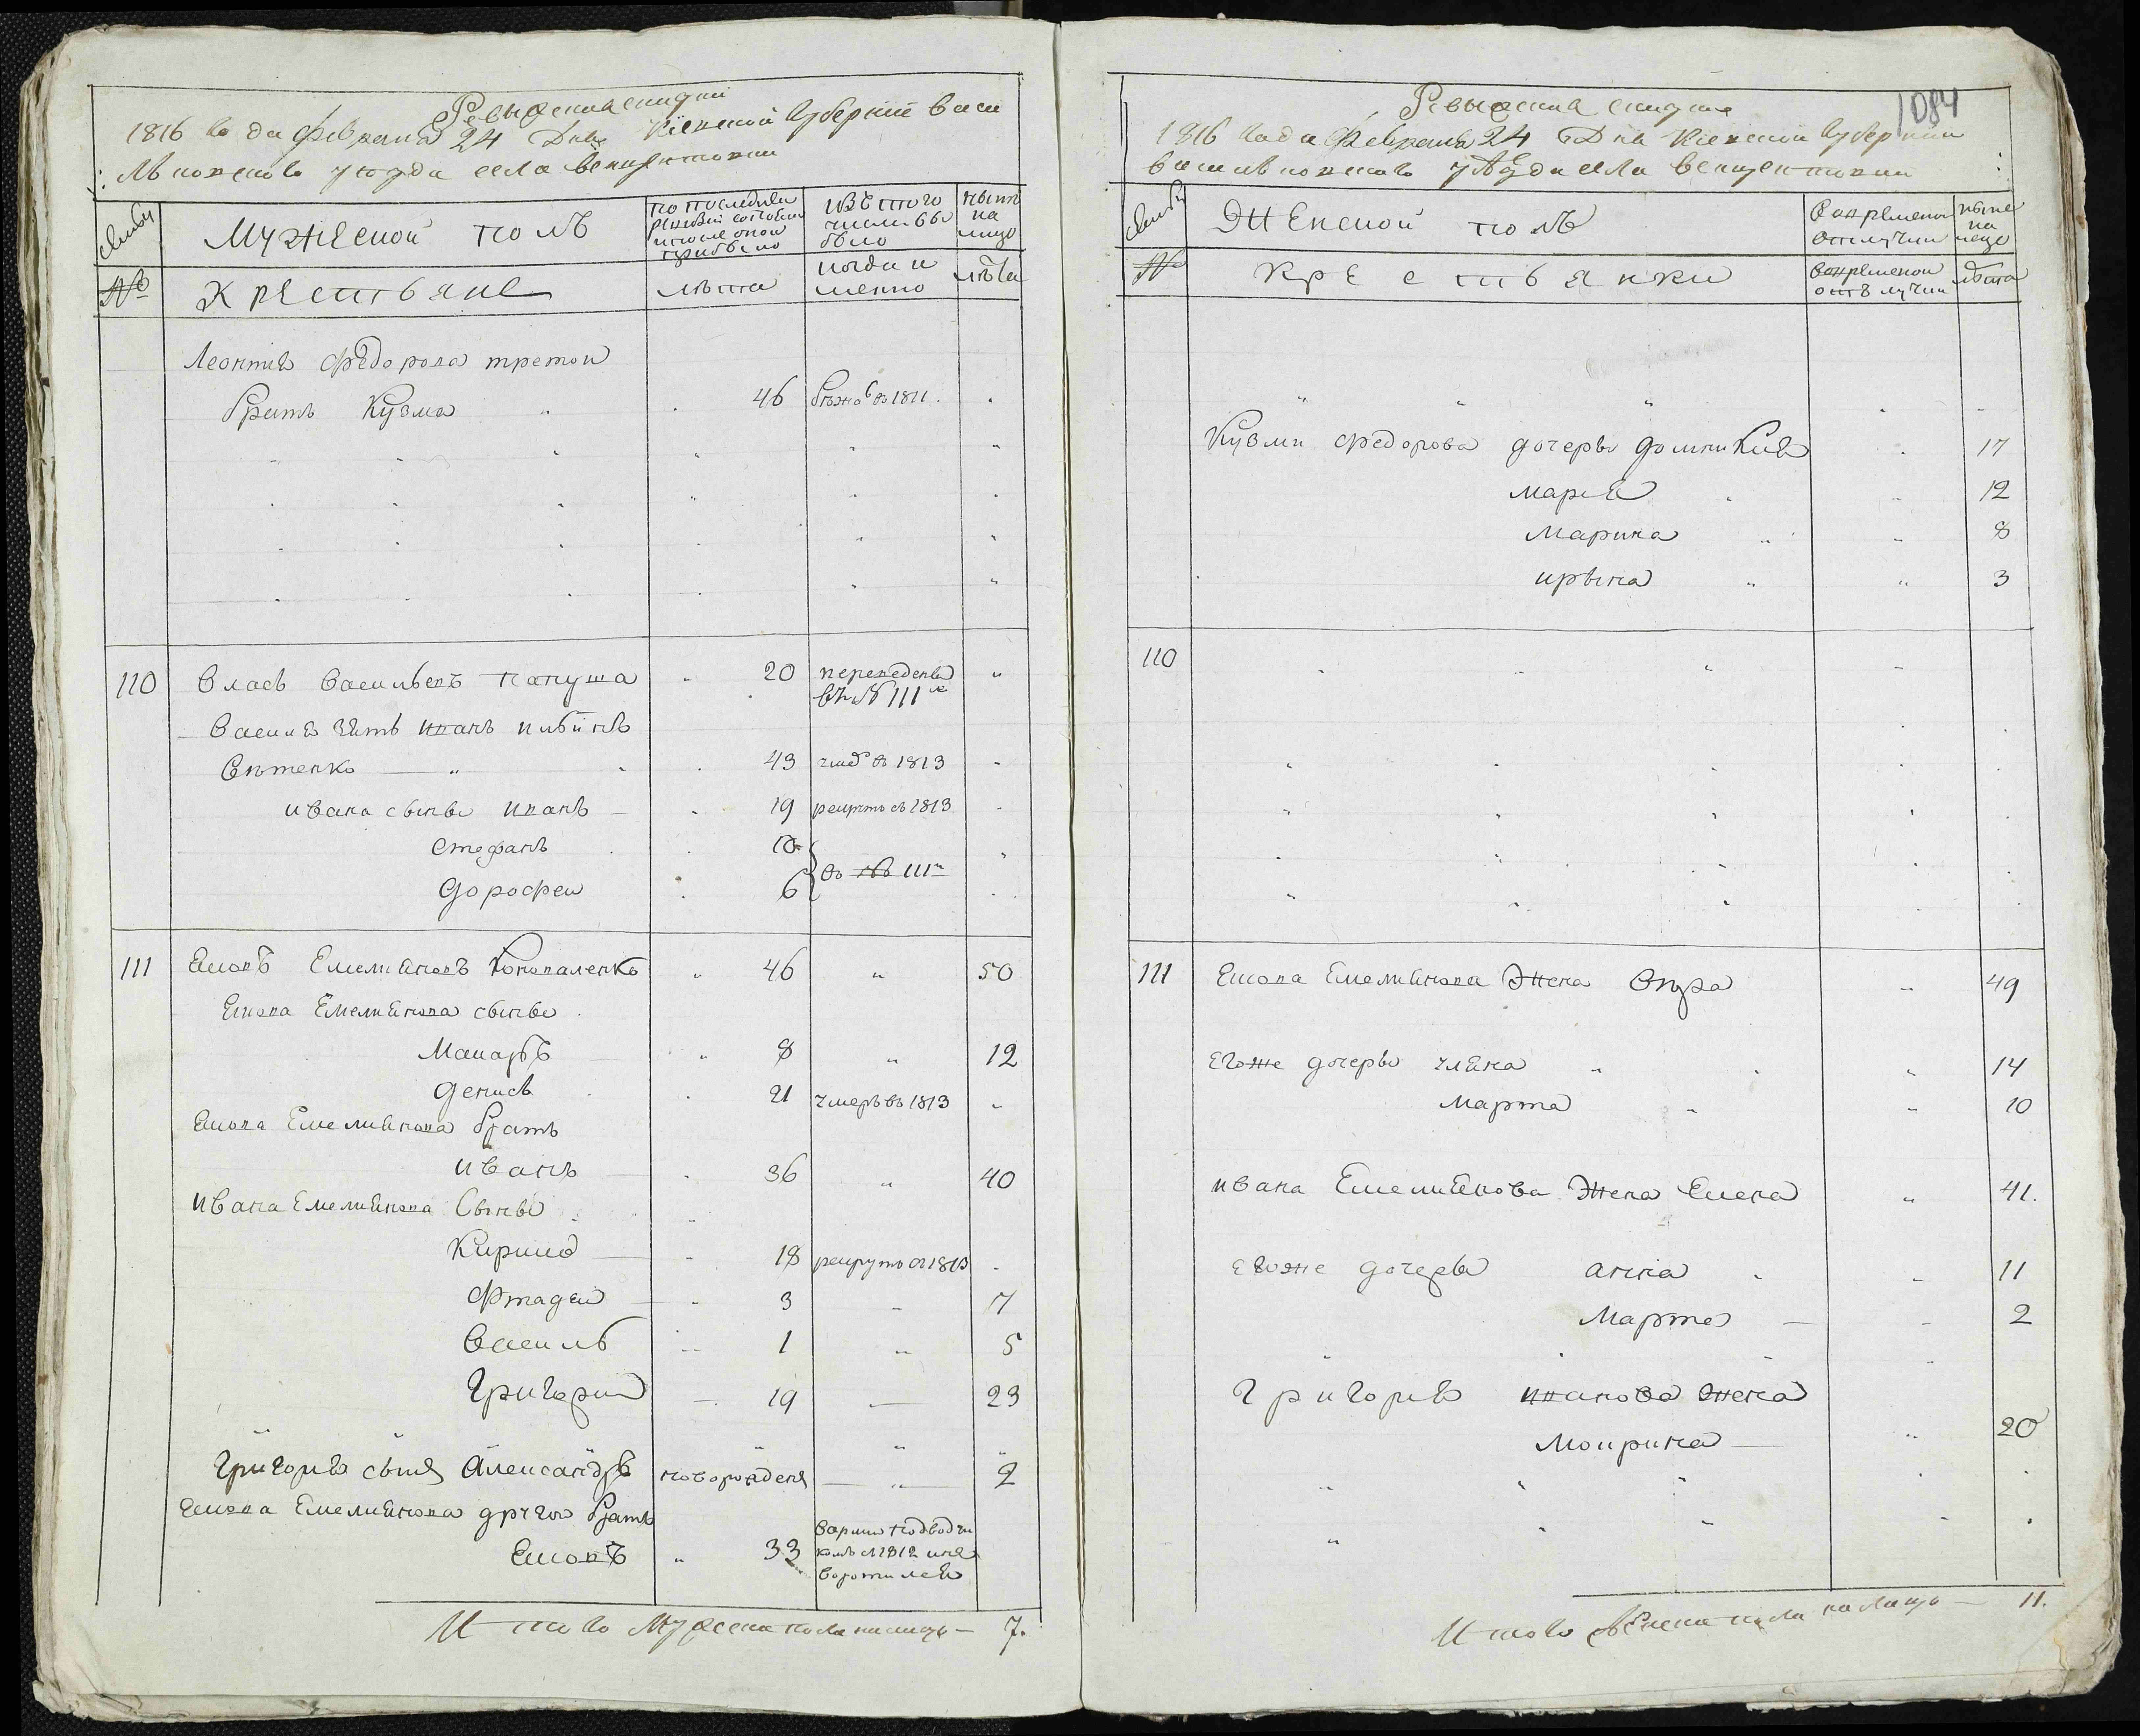 Ревыжская скаская
1816 года февраля 24 Дня Кіевской Губерніи Васи
лковского уезда села Винцентовки
семьи
Мужеской полъ
по последней
ревизіи состояло
и после оной
прибыло
изъ того
числа вы
было
ныне
на
лицо
№
Крестьяне
лета
когда и
менно
лѣта
Леонтия Федорова третои
братъ Кузма 46 бежа въ 1811
110 Власъ Васильевъ Папуша 20 переведенъ
въ № 111й
Василя зять Иванъ
43 умеръ въ 1813
Ивана сынъ Иванъ 19 рекрутъ въ 1813
Стефанъ 10
въ № 111й
Дорофеи 6
111 Емелияновъ Коноваленко 46 50
Емелиянова сынъ
Макаръ 8 12
Денисъ 21 умеръ въ 1813
Емелиянова братъ
Иванъ 36 40
Ивана Емелиянова Сынъ
Кирило 18 рекрутъ въ 1813
Фтадей 3 7
Василь 1 5
Григорий 19 23
Григория сынъ Александръ новорожденъ 2
Емелиянова другой братъ
33
подводчи
комъ въ 1812 и не
воротился
Итого Мужеска пола налицо — 7.
1084
Ревыжская скаская
1816 Года Февраля 24 Дня Кіевской Губерніи
Василковского уезда села Винцентовки
семьи
Женской полъ
во временной
отлучки
ныне
на
лицо
№
Крестьянки
во временной
отлучки
лѣта
Кузми Федорова дочеръ Домникия 17
Мария 12
Марина 8
Ирына 3
110
111 Емелиянова Жена 49
Егоже дочеръ Уляна 14
Марта 10
Ивана Емелиянова Жена Елена 41.
Егоже дочеръ Анна 11
Марта 2
Григория Иванова жена
Мокрина 20
Итого Женска пола налицо — 11.